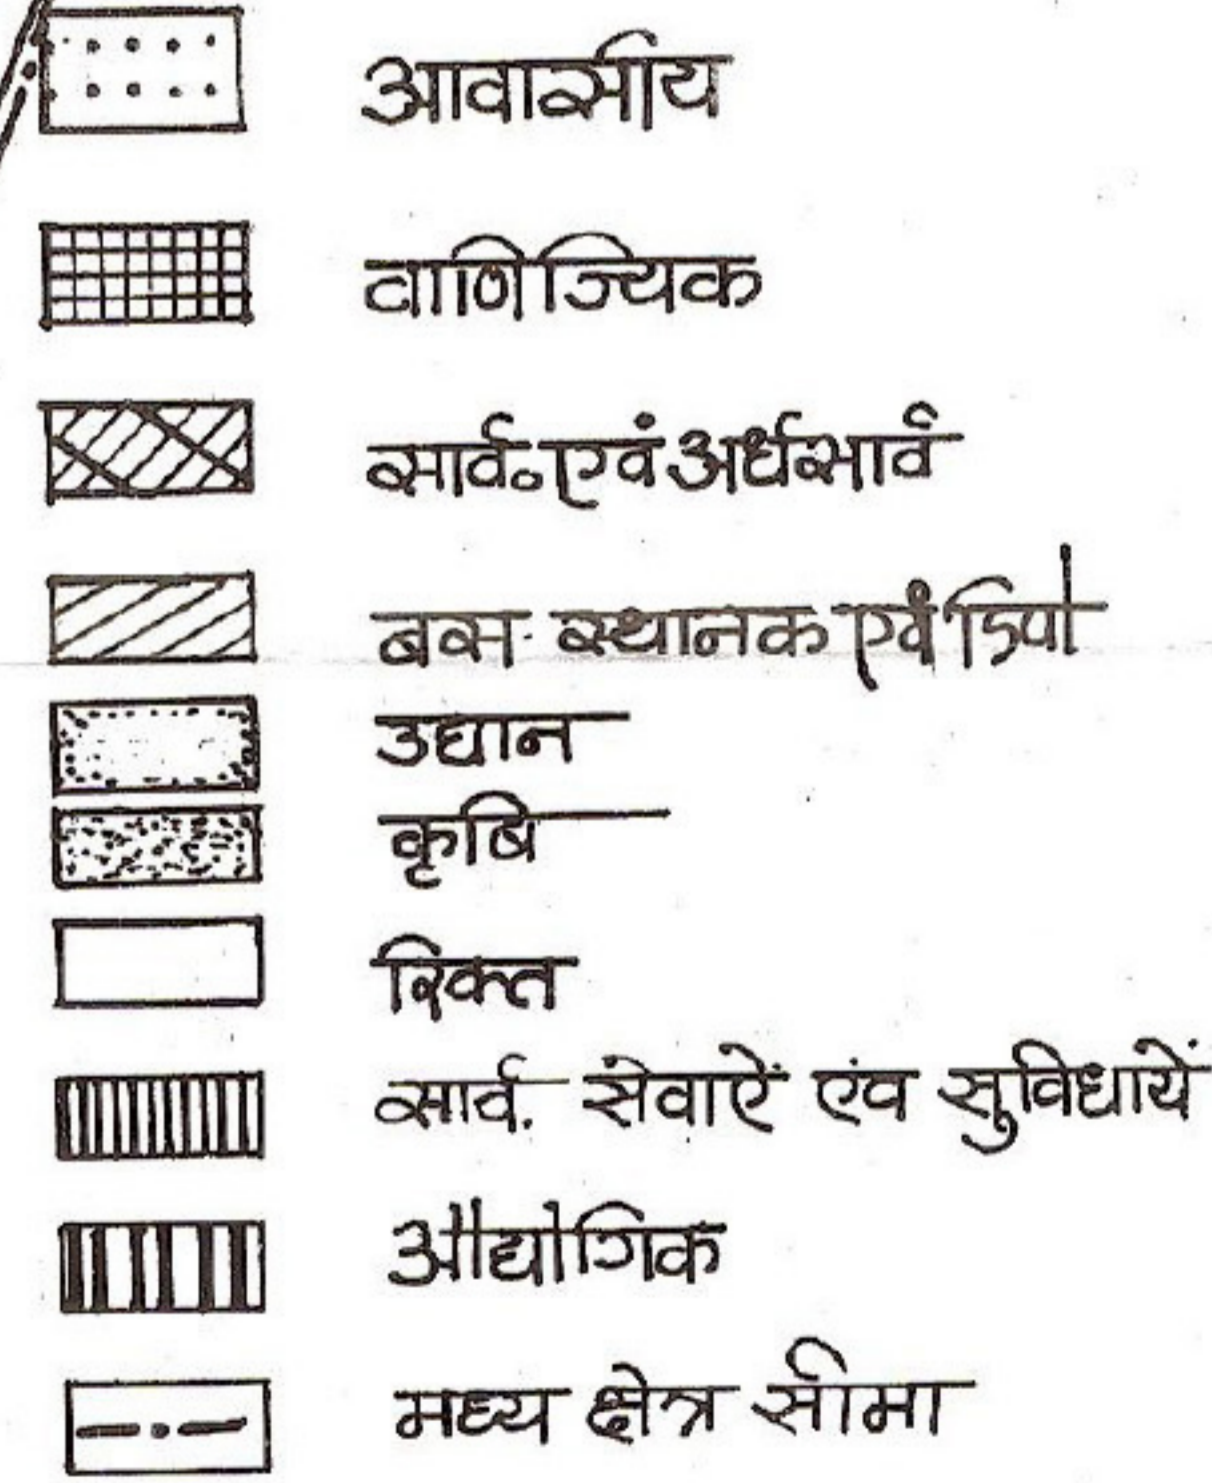 आवासीय
वाणिज्यिक
सार्व०एवं अर्धसार्व
बस स्थानक एवं डिपो
उद्यान
कृषि
रिक्त
सार्व. सेवाऐं एंव सुविधायें
औद्योगिक
मध्य क्षेत्र सीमा